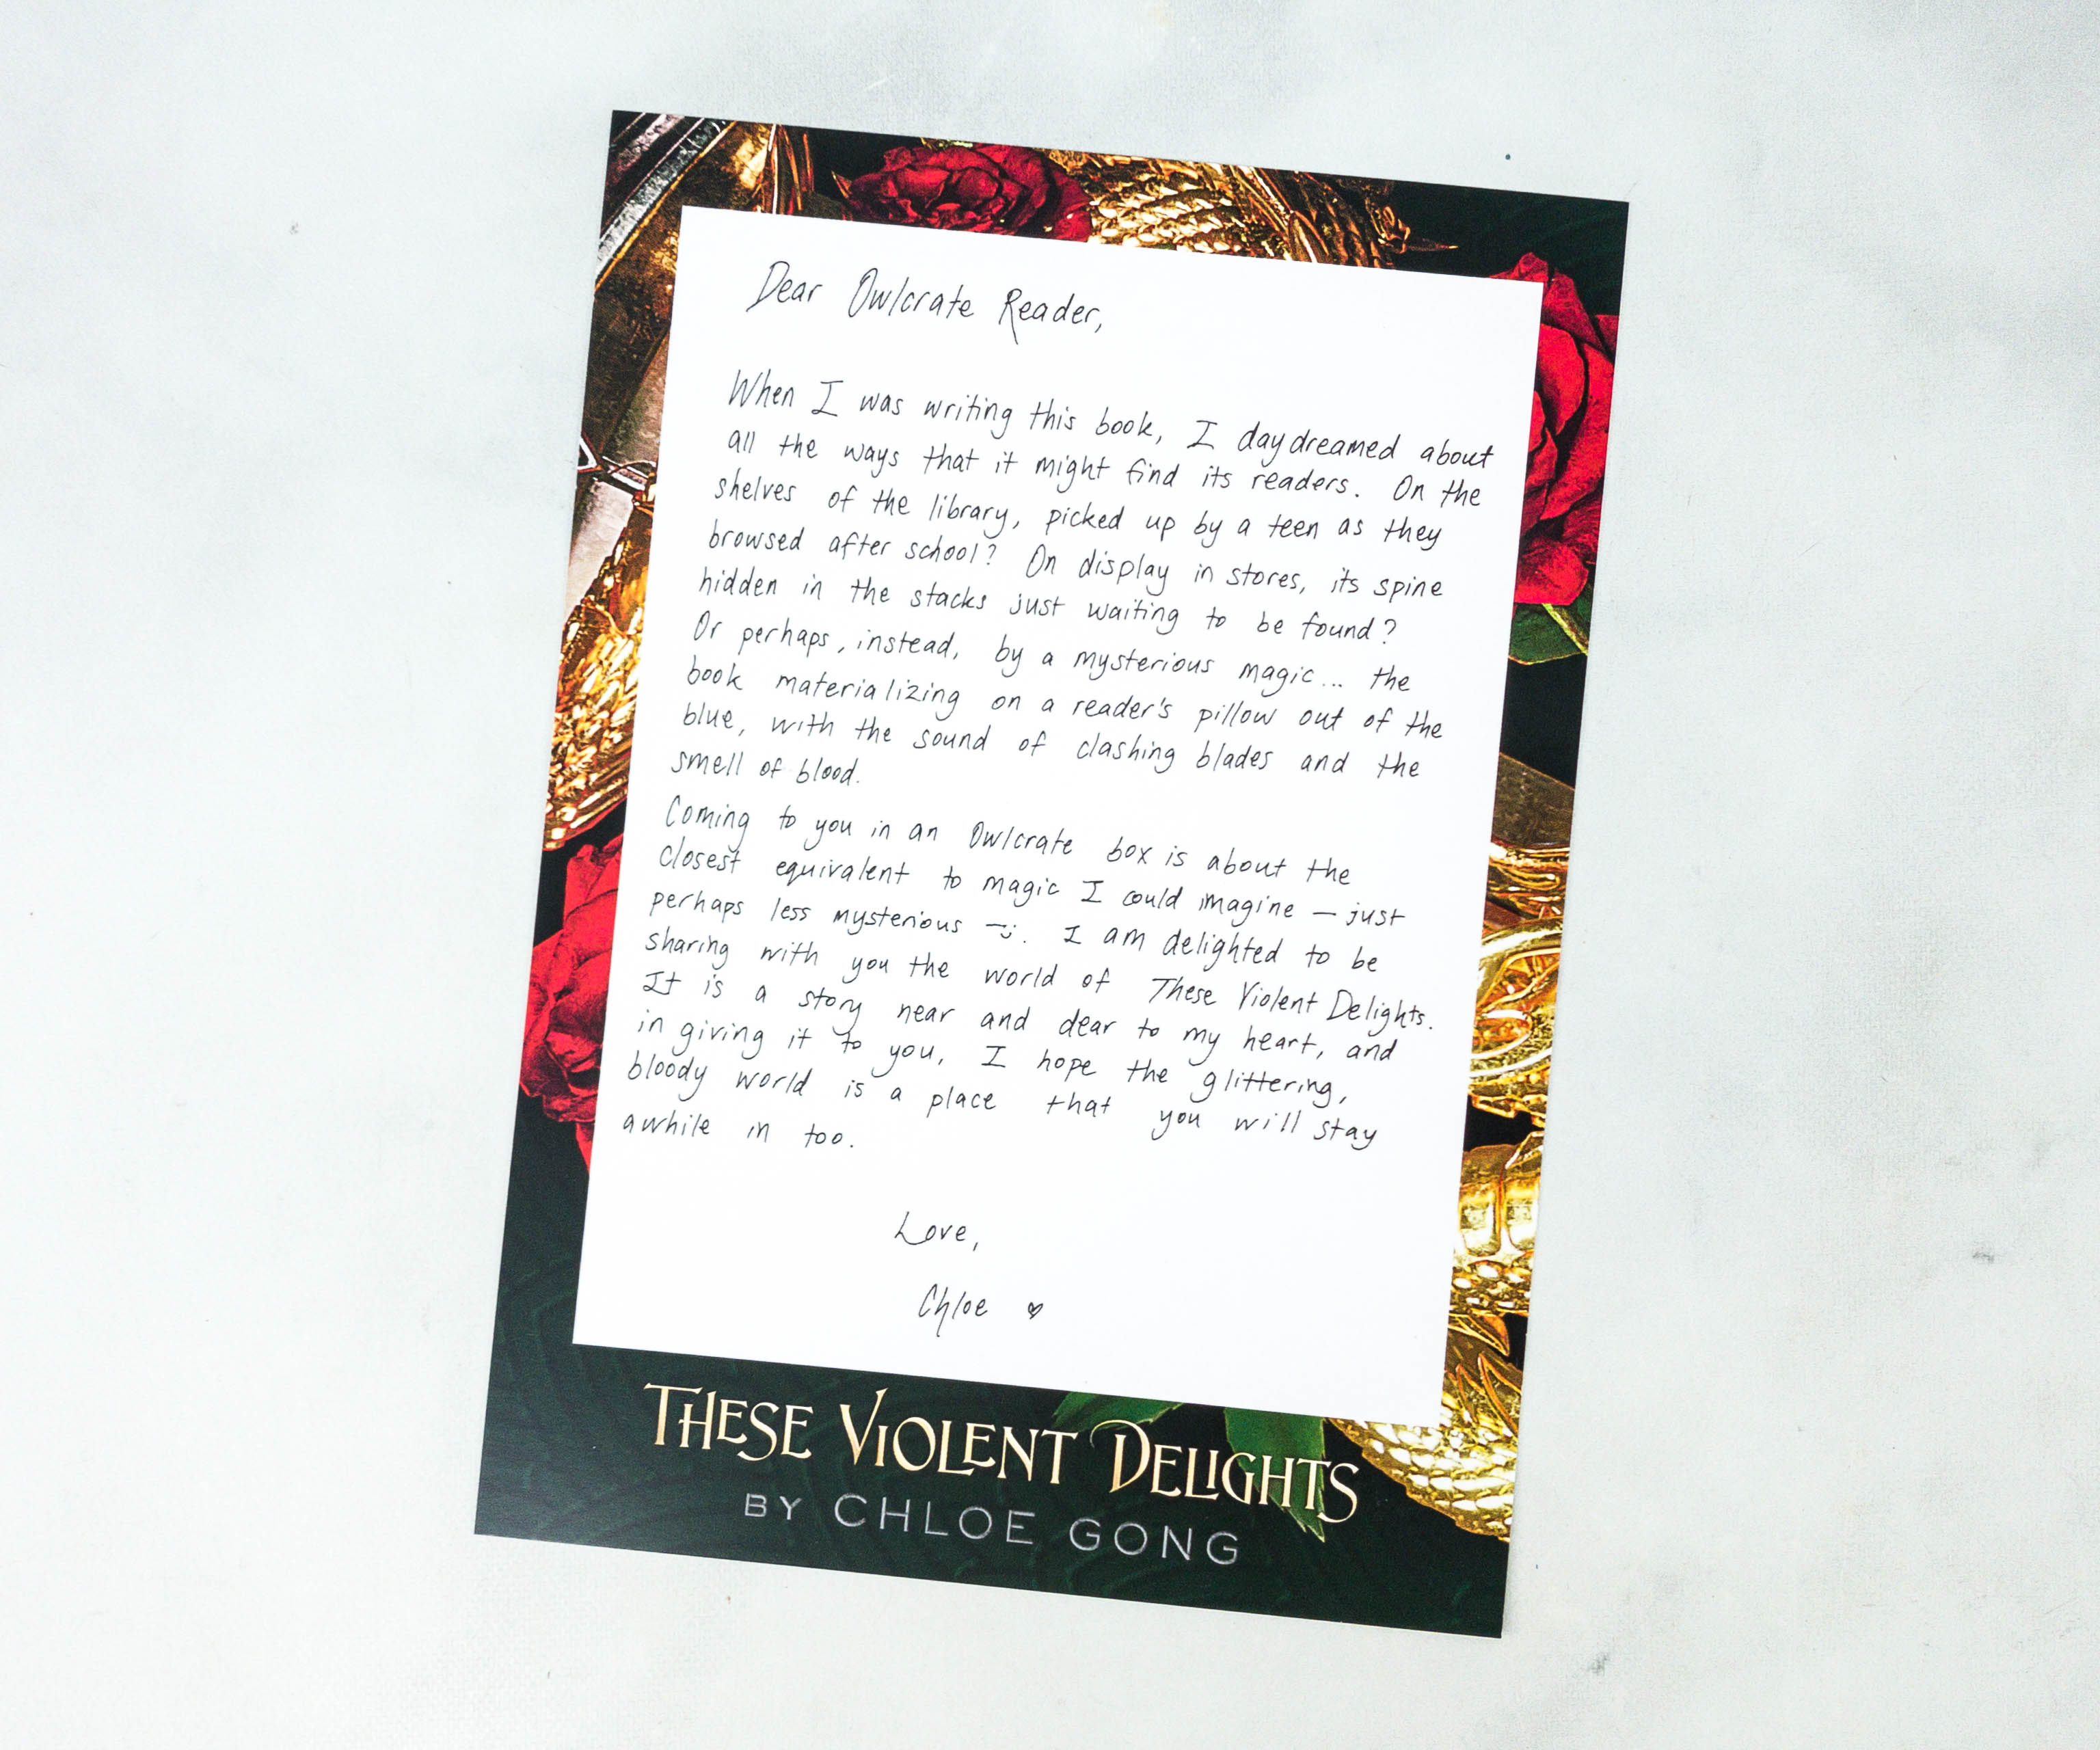 Dear Owlcrate Reader,
When I was writing this book, I daydreamed about
all the ways that it might find its readers. On the
shelves of the library, picked up by a teen as they
browsed after school? On display in stores, its spine
hidden in the stacks just waiting to be found?
Or perhaps, instead, by a mysterious magic... the
book materializing on a reader's pillow out of the
blue, with the sound of clashing blades and the
smell of blood.
Coming to you in an Owlcrate box is about the
closest equivalent to magic I could imagine – just
perhaps less mysterious :). I am delighted to be
sharing with you the world of These Violent Delights.
It is a story near and dear to my heart, and
in giving it to you, I hope the glittering,
bloody world is a place that you will stay
awhile in too.
Love,
Chloe ♡
THESE VIOLENT DELIGHTS
BY CHLOE GONG